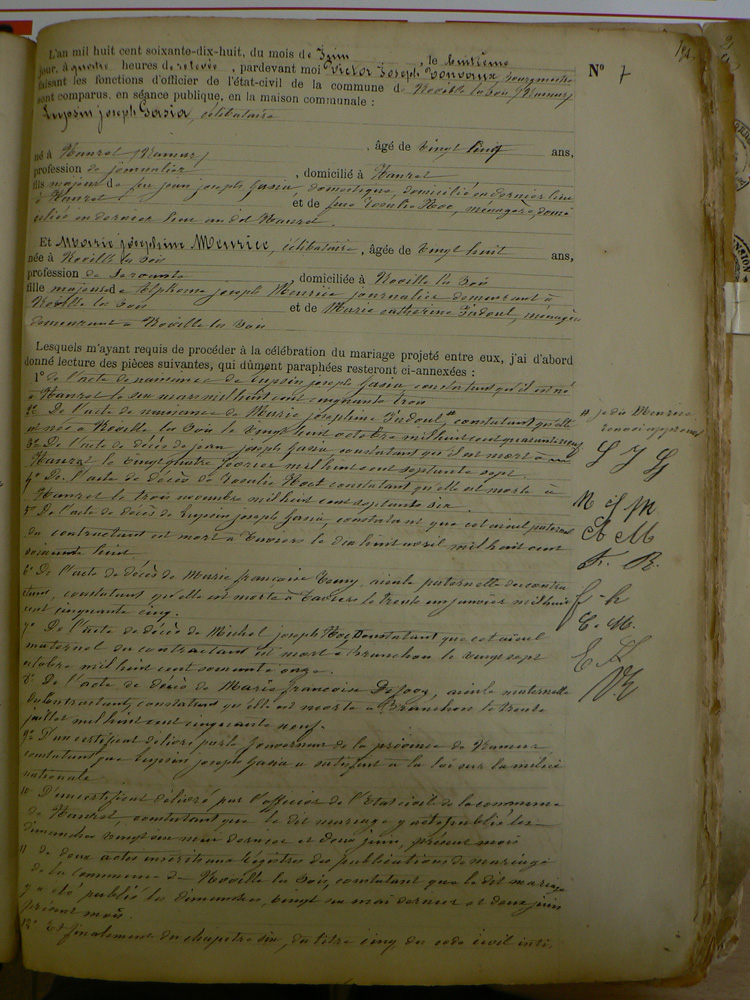 L'an mil huit cent soixante-dix-huit, du mois de Juin, le huitième
jour, à quatre heures de relevée, pardevant moi Victor Joseph bourgmestre
faisant les fonctions d'officier de l'état-civil de la commune de Noville les Bois (Namur)
sont comparus, en séance publique, en la maison communale :
Lupsin joseph Gasia, célibataire
né à Hanret (Namur), âgé de vingt cinq ans,
profession de journalier, domicilié à Hanret
fils majeur de feu jean joseph Gasia, domestique, domicilié en dernier lieu
à Hanret et de feue Rosalie Hoc, ménagère, domi
ciliée en dernier lieu au dit Hanret.
Et Marie joséphine Meurice, célibataire, âgée de vingt huit ans,
née à Noville les Bois
profession de servante, domiciliée à Noville les Bois
fille majeure de Alphonse joseph Meurice journalier demeurant à
Noville les Bois et de Marie catherine Tadoul, ménagère
demeurant à Noville les Bois
Lesquels m'ayant requis de procéder à la célébration du mariage projeté entre eux, j'ai d'abord
donné lecture des pièces suivantes, qui dûment paraphées resteront ci-annexées :
1° de l'acte de naissance de Lupsin joseph Gasia constatant qu'il est né
à Hanret le six mars mil huit cent cinquante trois
2° De l'acte de naissance de Marie joséphine Tadoul #, constatant qu'elle
est née à Noville les Bois le vingt huit octobre mil huit cent quarante neuf
3° De l'acte de décès de jean joseph Gasia, constatant qu'il est mort à
Hanret le vingt quatre février mil huit cent septante sept.
4° De l'acte de décès de Rosalie Hoct constatant qu'elle est morte à
Hanret le trois novembre mil huit cent septante six.
5° De l'acte de décès de Lupsin joseph Gasia, constatant que cet aïeul paternel
du contractant est mort à Taviers le dix huit avril mil huit cent
soixante huit.
6° De l'acte de décès de Marie françoise, aïeule paternelle du contrac
tant, constatant qu'elle est morte à Taviers le trente un janvier mil huit
cent cinquante cinq.
7° De l'acte de décès de Michel joseph Hoc constatant que cet aïeul
maternel du contractant est mort à Branchon le vingt sept
octobre mil huit cent soixante onze.
8° De l'acte de décès de Marie françoise, aïeule maternelle
du contractant, constatant qu'elle est morte à Branchon le trente
juillet mil huit cent cinquante neuf.
9° D'un certificat délivré par le Gouverneur de la province de Namur
constatant que Lupsin joseph Gasia a satisfait à la loi sur la milice
nationale.
10° D'un certificat délivré par l'officier de l'Etat civil de la commune
de Hanret, constatant que le dit mariage y a été publié les
dimanches vingt six mai dernier et deux juin, présent mois
11° de deux actes inscrits aux registres des publications de mariage
de la commune de Noville les Bois, constatant que le dit mariage
y a été publié les dimanches, vingt six mai dernier et deux juin
présent mois.
12° Et finalement du chapitre six, du titre cinq du code civil inti-
N° 7
# je dis Meurice
renvoi approuvé
L J G
M J M
A M
F. R.
C. M.